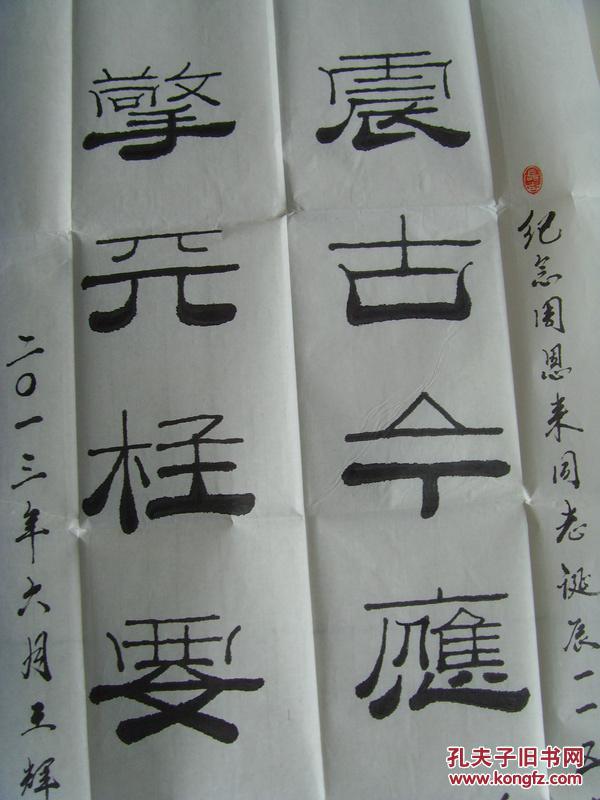 纪念周恩来同志诞辰一一五
震古今應
擎天柱要
二〇一三年六月王辉
孔夫子旧书网
www.kongfz.com